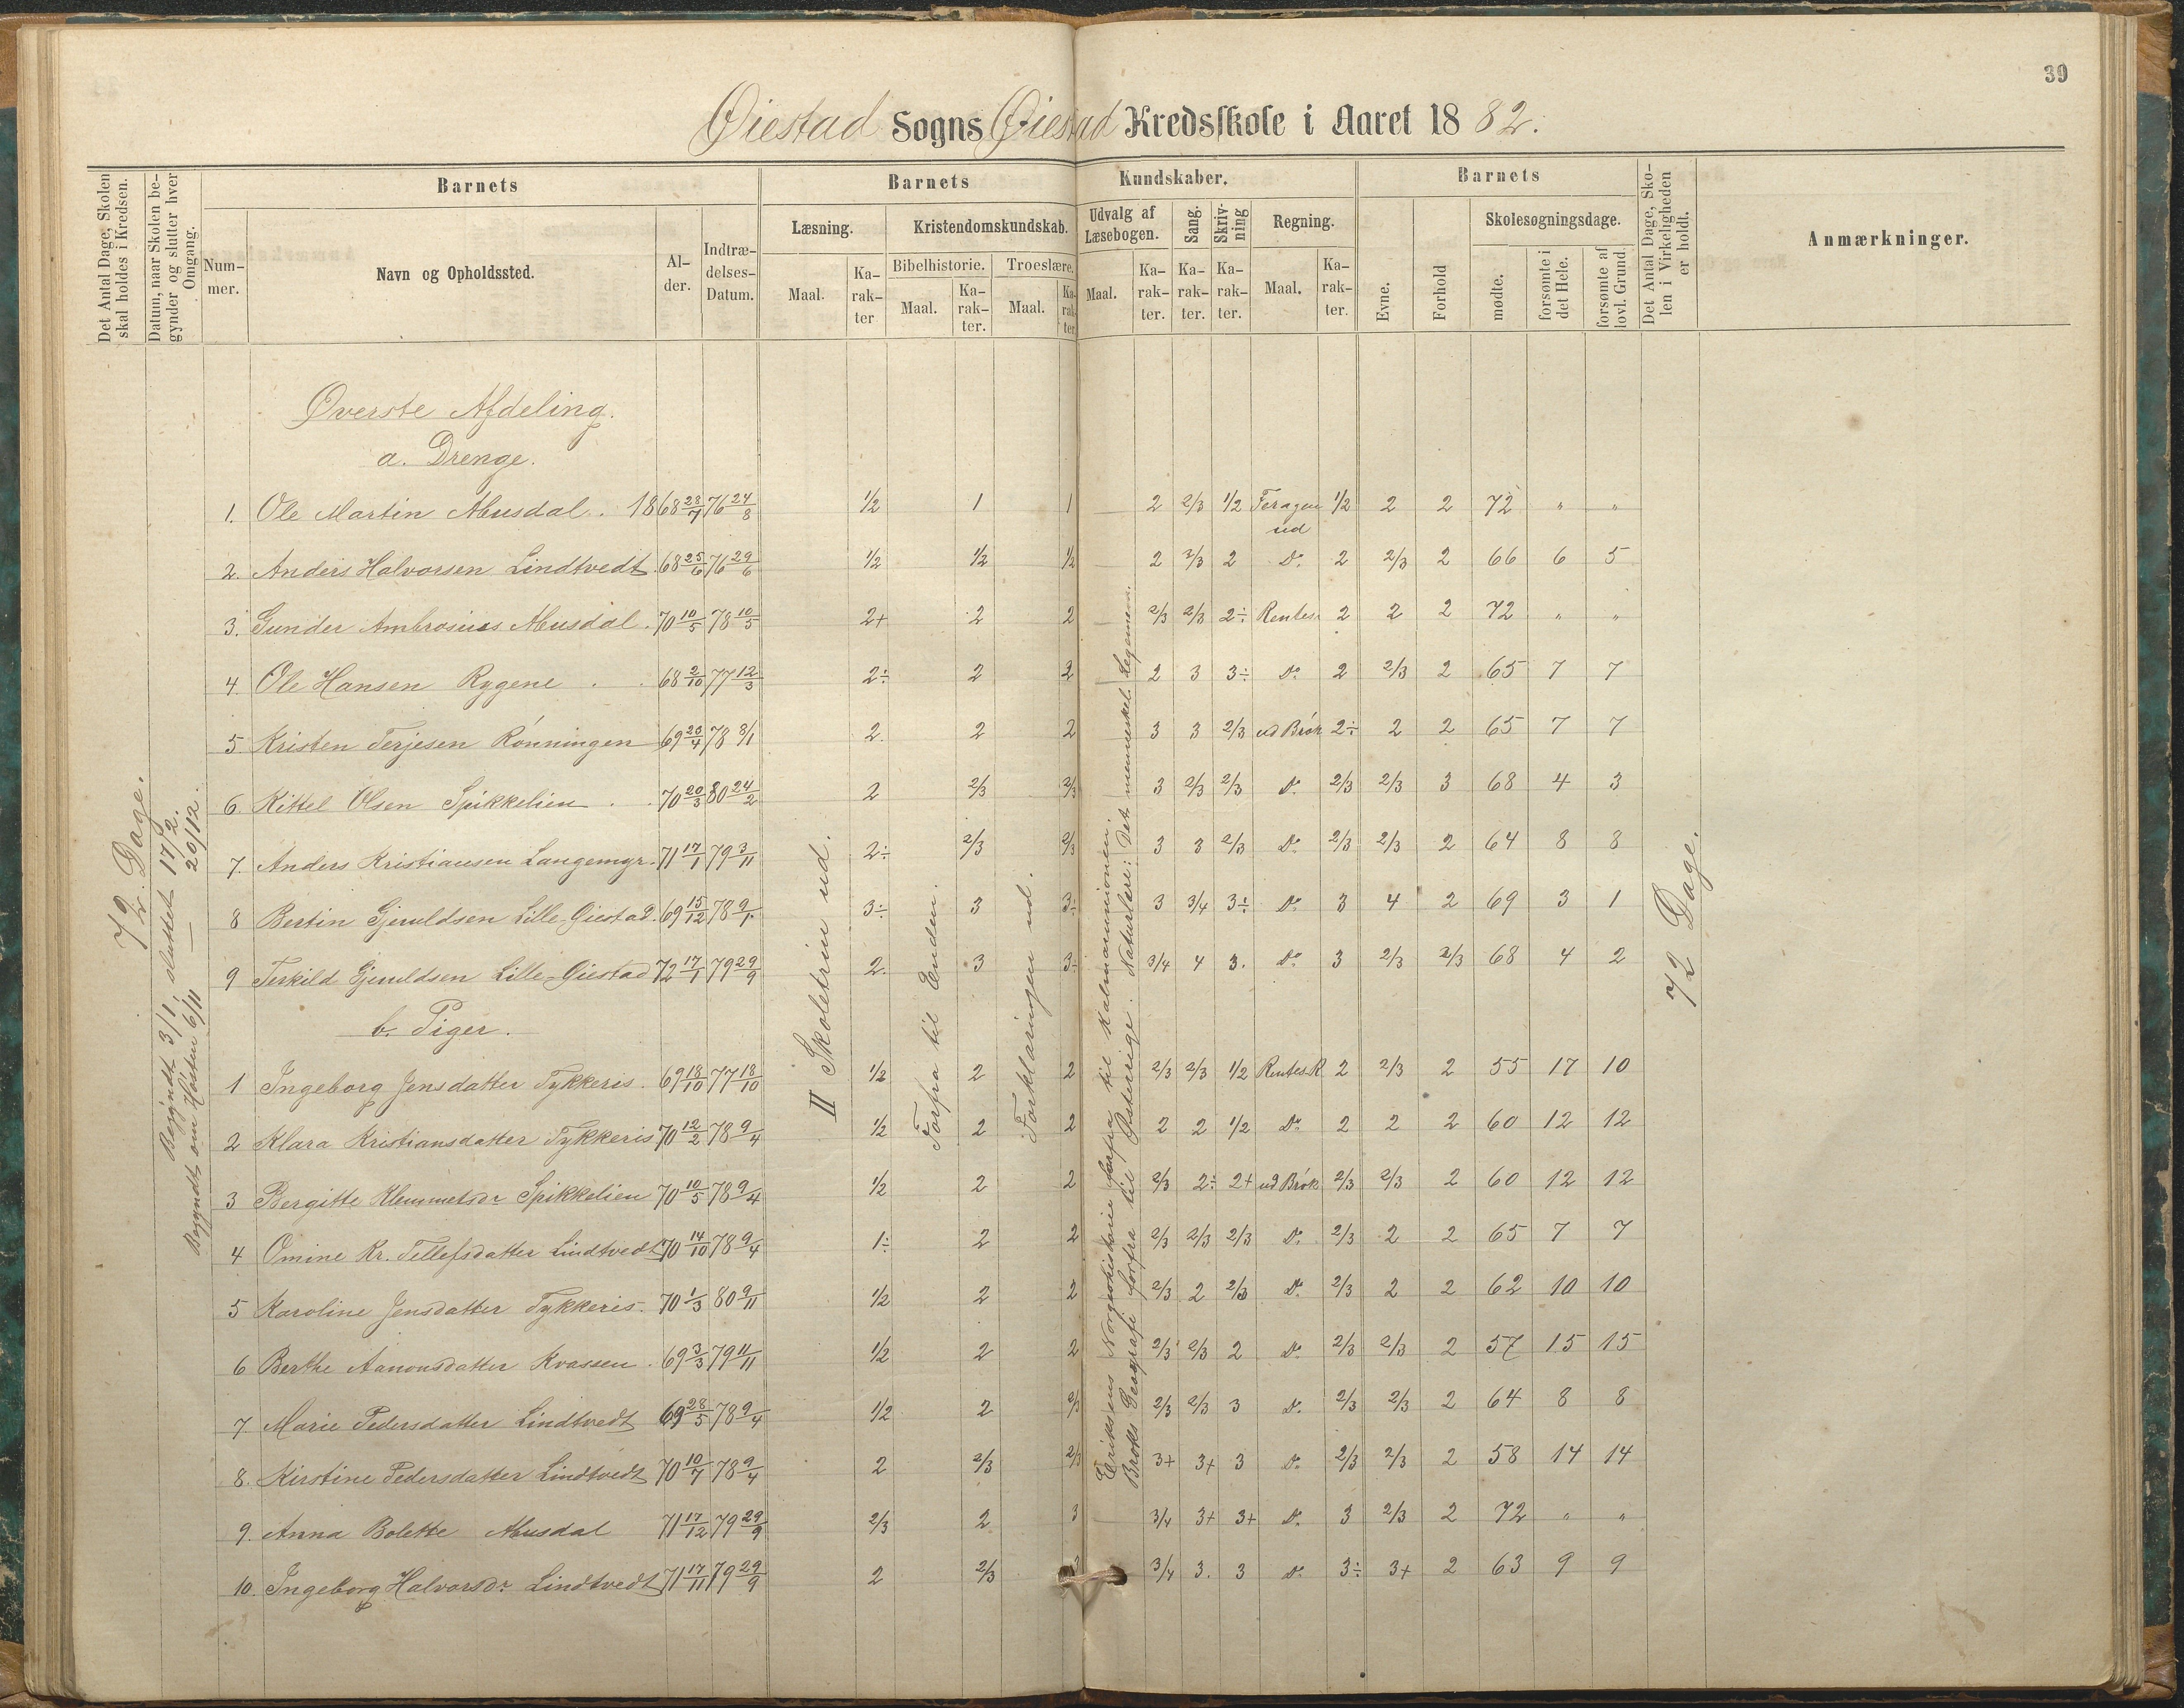 39
Øiestad Sogns Øiestad Kredsskole i Aaret 1882.
Det Antal Dage, Skolen skal holdes i Kredsen.
Datum, naar Skolen begynder og slutter hver Omgang.
Barnets
Num-mer.
Navn og Opholdssted.
Al-der.
Indtræ-delses-Datum.
Barnets Kundskaber.
Læsning.
Maal.
Ka-rak-ter
Kristendomskundskab.
Bibelhistorie.
Maal.
Ka-rak-ter.
Troeslære.
Maal.
Ka-rak-ter.
Udvalg af Læsebogen.
Maal.
Ka-rak-ter.
Sang.
Ka-rak-ter.
Skriv-ning
Ka-rak-ter.
Regning.
Maal.
Ka-rak-ter.
Barnets
Evne.
Forhold
Skolesøgningsdage.
mødte.
forsømte i det Hele.
forsømte af lovl. Grund.
Det Antal Dage, Sko-len i Virkeligheden er holdt.
Anmærkninger.
72 Dage.
Begyndt 3/1, sluttet 17/2.
Begyndt om Høsten 6/11 — 20/12.
II Skoletrin ud.
Forfra til Enden.
Forklaringen ud.
Eriksens Norgeshistorie forfra til Kalmarunionen.
Broks Geografi forfra til Østerrige. Naturlære: Det menneskel. Legeme.
72 Dage.
Øverste Afdeling.
a. Drenge.
1. Ole Martin Musdal. 1868 28/7 76 24/8 1/2 1 1 2 2/3 1/2 Feragen ud 1/2 2 2 72 " "
2. Anders Halvorsen Lindtvedt. 68 25/6 76 29/6 1/2 1/2 1/2 2 2/3 2 Do. 2 2/3 2 66 6 5
3. Gunder Ambrosius Musdal. 70 10/5 78 10/5 2+ 2 2 2/3 2/3 2÷ Rentes. 2 2 2 72 " "
4 Ole Hansen Rygene . . 68 2/10 77 12/3 2÷ 2 2 2 3 3÷ Do. 2 2/3 2 65 7 7
5 Kristen Terjesen Rønningen 69 20/4 78 8/1 2. 2 2 3 3 2/3 ud Brøk 2÷ 2 2 65 7 7
6. Kittel Olsen Spikkelien . . 70 20/3 80 24/2 2 2/3 2/3 3 2/3 2/3 Do. 2/3 2/3 3 68 4 3
7. Anders Kristiansen Langemyr. 71 17/1 79 3/11 2÷ 2/3 2/3 3 3 2/3 Do. 2/3 2/3 2 64 8 8
8 Bertin Gjeruldsen Lille-Øiestad. 69 15/12 78 9/1 3÷ 3 3÷ 3 3/4 3÷ Do. 3 4 2 69 3 1
9 Terkild Gjeruldsen Lille-Øiestad 72 17/1 79 29/9 2. 3 3÷ 3/4 4 3. Do. 3 2/3 2/3 68 4 2
b. Piger.
1 Ingeborg Jensdatter Tykkeris. 69 18/10 77 18/10 1/2 2 2 2/3 2/3 1/2 Rentes.R 2 2/3 2 55 17 10
2 Klara Kristiansdatter Tykkeris 70 12/2 78 9/4 1/2 2 2 2 2 1/2 Do. 2 2 2 60 12 12
3 Bergitte Klemmetsdr Spikkelien 70 10/5 78 9/4 1/2 2 2 2/3 2÷ 2+ ud Brøk 2/3 2/3 2 60 12 12
4 Omine Kr. Tellefsdatter Lindtvedt 70 14/10 78 9/4 1÷ 2 2 2/3 2/3 2/3 Do. 2/3 2 2 65 7 7
5 Karoline Jensdatter Tykkeris. 70 1/3 80 9/11 1/2 2 2 2/3 2 2/3 Do. 2/3 2 2 62 10 10
6 Berthe Aanonsdatter Kvassen. 69 3/3 79 11/11 1/2 2 2 2/3 2/3 2 Do. 2/3 2/3 2 57 15 15
7. Marie Pedersdatter Lindtvedt 69 28/5 78 9/4 1/2 2 2/3 2/3 2/3 3 Do. 2/3 2/3 2 64 8 8
8. Kirstine Pedersdatter Lindtvedt 70 10/7 78 9/4 2 2/3 2/3 3+ 3+ 3 Do. 2/3 2/3 2 58 14 14
9. Anna Bolette Musdal 71 17/12 79 29/9 2/3 2 3 3/4 3+ 3+ Do. 3 2/3 2 72 " "
10. Ingeborg Halvorsdr Lindtvedt 71 17/11 79 29/9 2 2/3 3/4 3. 3 Do. 3÷ 3+ 2 63 9 9